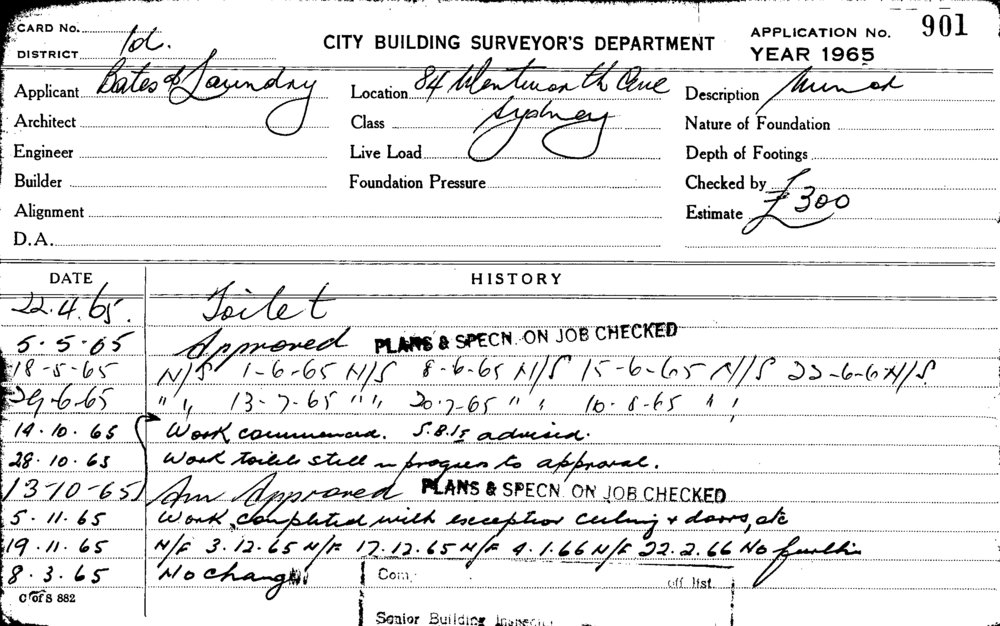 CARD No.
DISTRICT Id.
CITY BUILDING SURVEYOR'S DEPARTMENT
APPLICATION No. 901
YEAR 1965
Applicant Bates Laundry Location 84 Wentworth Ave Description
Architect Class Sydney Nature of Foundation
Engineer Live Load Depth of Footings
Builder Foundation Pressure Checked by
Alignment Estimate £300
D.A.
DATE HISTORY
22.4.65. Toilet
5.5.65 Approved PLANS & SPECN. ON JOB CHECKED
18-5-65 N/S 1-6-65 N/S 8-6-65 N/S 15-6-65 N/S 22-6-6 N/S.
29-6-65 " " 13-7-65 " " 20-7-65 " " 10-8-65 " "
14.10.65 Work commenced. advised.
28.10.65 Work toilet still in progress to approval.
13-10-65 Am Approved PLANS & SPECN. ON JOB CHECKED
5.11.65 Work completed with exception ceiling & doors, etc
19.11.65 N/F 3.12.65 N/F 17.12.65 N/F 4.1.66 N/F 22.2.66 No further
8.3.65 No change
C of S 882
Com. off. list.
Senior Building